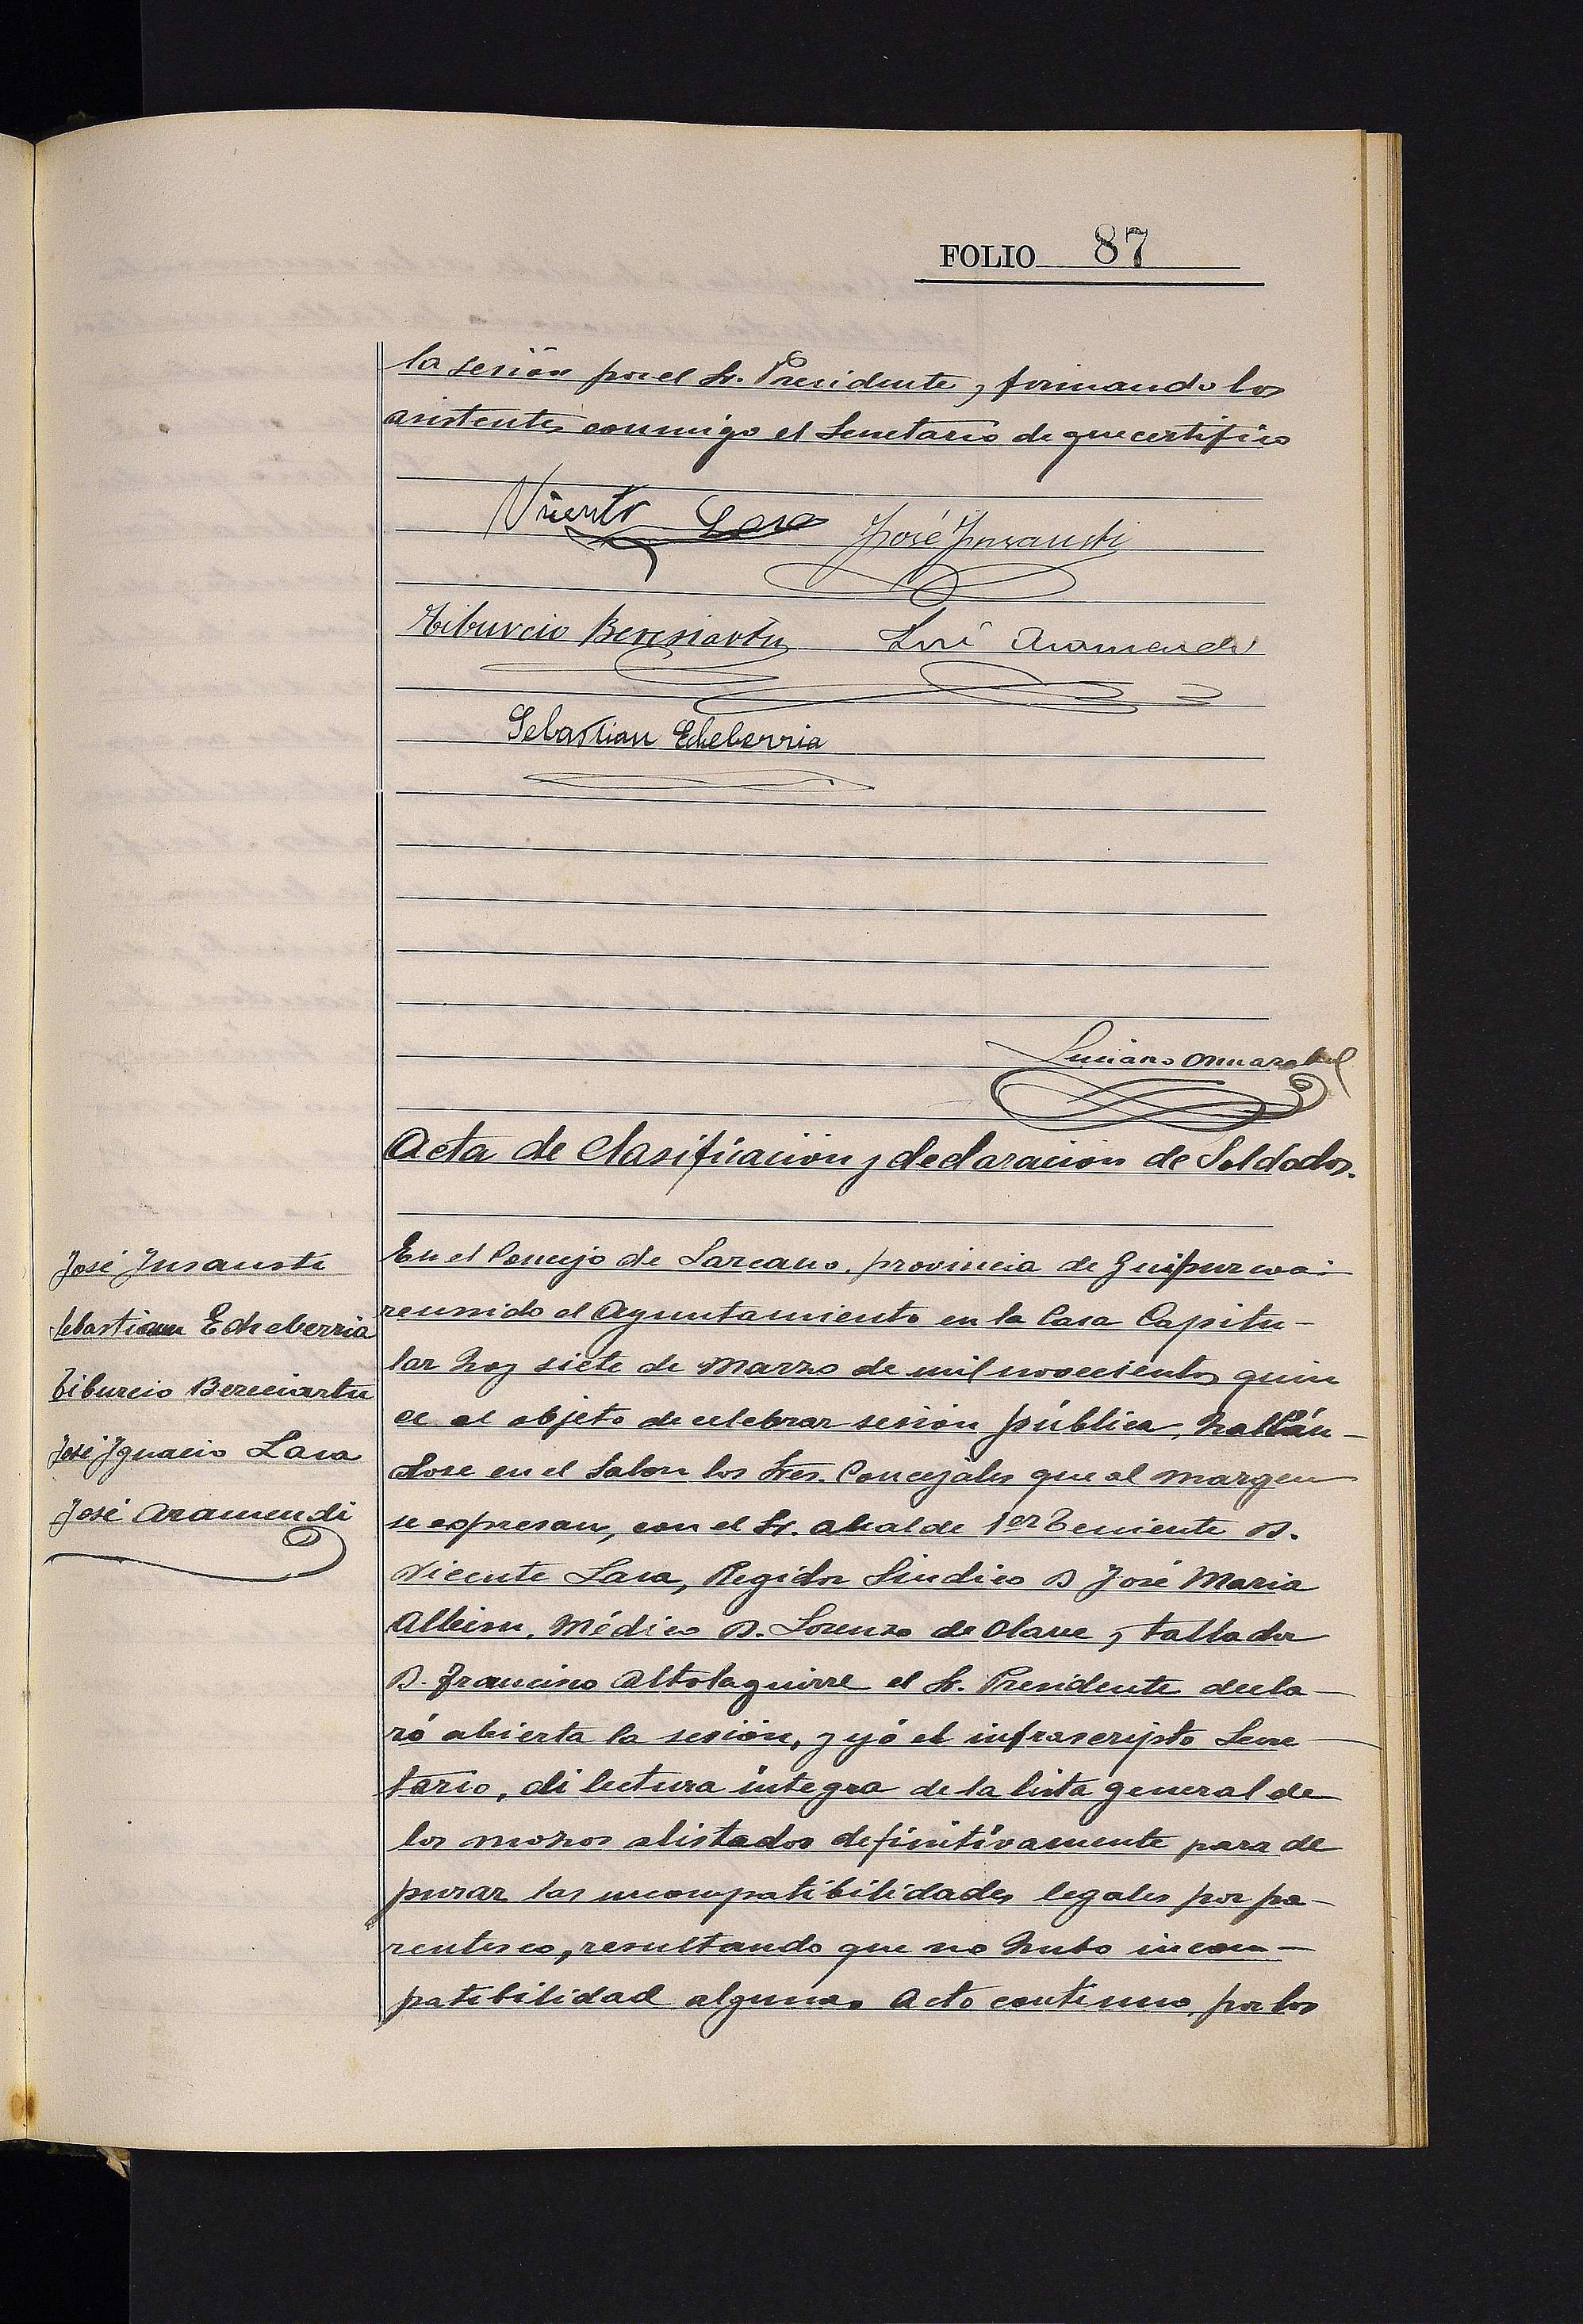 FOLIO 87
la sesión por el Sr. Presidente, y firmando los
asistentes conmigo el Secretario de que certifico
Vicente Lasa José Insausti
Tiburcio Bereciartu José Aramendi
Sebastian Echeberria
Luciano
Acta de Clasificacion y declaracion de Soldados.
José Insausti
Sebastian Echeberria
Tiburcio Bereciartu
José Ignacio Lasa
José Aramendi
En el Concejo de Lazcano, provincia de Guipuzcoa:
reunido el Ayuntamiento en la Casa Capitu-
lar hoy siete de Marzo de mil novecientos quin
ce al objeto de celebrar sesión pública, hallán-
dose en el Salon los Sres. Concejales que al margen
se expresan, con el Sr. Alcalde 1er Teniente D.
Vicente Lasa, Regidor Síndico D José Maria
Albisu, Médico D. Lorenzo de Olave y tallador
D. Francisco Altolaguirre el Sr. Presidente decla-
ró abierta la sesión, y yó el infrascripto Secre
tario, di lectura integra de la lista general de
los mozos alistados definitivamente para de
purar las incompatibilidades legales por pa-
rentesco, resultando que no hubo incom-
patibilidad alguna. Acto continuo, por los